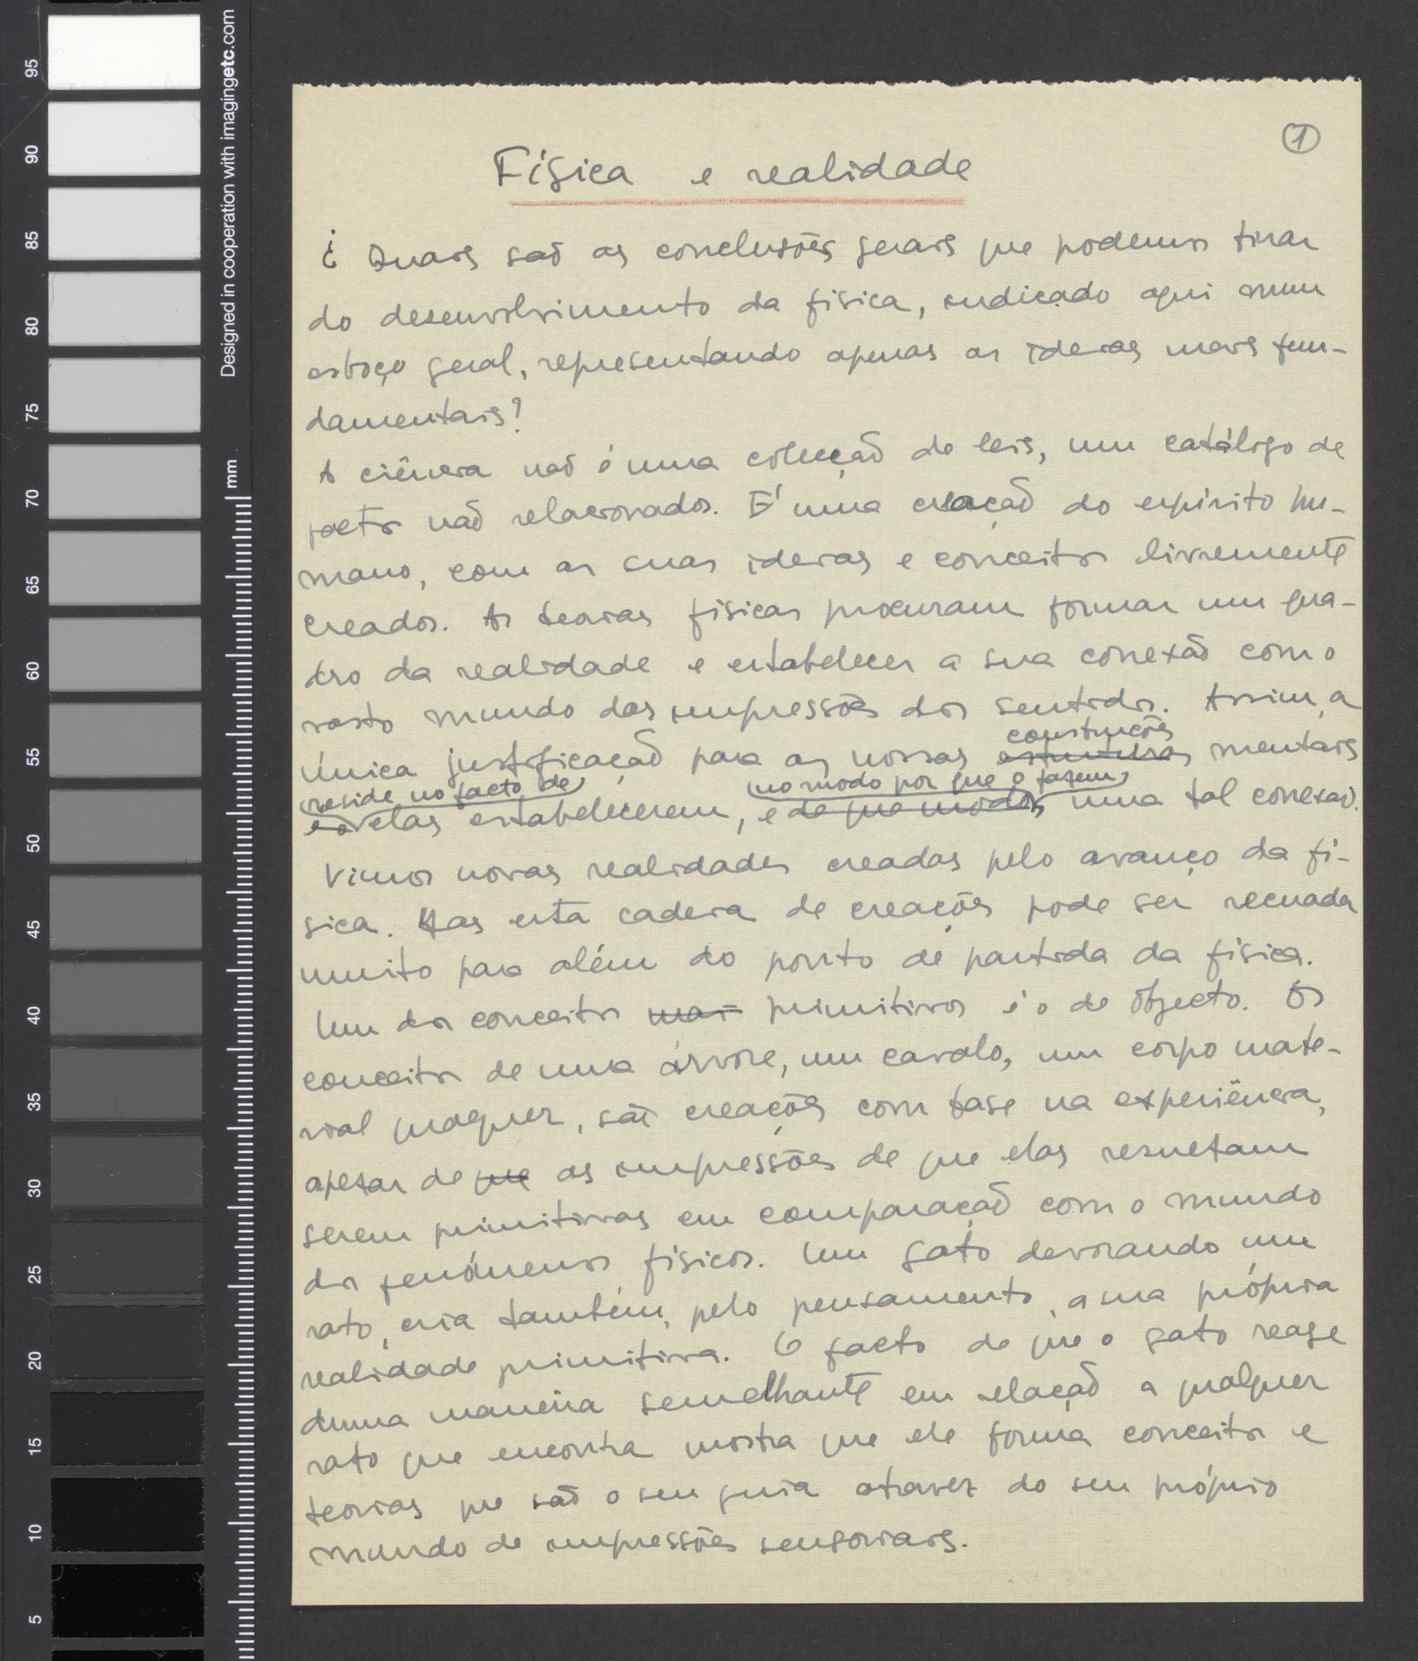 1
Física e realidade
¿ Quais são as conclusões gerais que podemos tirar
do desenvolvimento da fisica, indicado aqui num
esboço geral, representando apenas as ideias mais fun-
damentais?
A ciência não é uma colecção de leis, um catálogo de
factos não relacionados. É uma creação do espírito hu-
mano, com as suas ideias e conceitos livremente
creados. As teorias físicas procuram formar um qua-
dro da realidade e estabelecer a sua conexão com o
vasto mundo das impressões dos sentidos. Assim, a
construções
única justificação para as nossas estruturas mentais
reside no facto de no modo por que o fazem
elas estabelecerem, e de que modos, uma tal conexão.
Vimos novas realidades creadas pelo avanço da fí-
sica. Mas esta cadeia de creações pode ser recuada
muito para além do ponto de partida da física.
Um dos conceitos mais primitivos é o de objecto. Os
conceitos de uma árvore, um cavalo, um corpo mate-
rial qualquer, são creações com base na experiência,
apesar de que as impressões de que elas resultam
serem primitivas em comparação com o mundo
dos fenómenos físicos. Um gato devorando um
rato, cria também, pelo pensamento, a sua própria
realidade primitiva. O facto de que o gato reage
duma maneira semelhante em relação a qualquer
rato que encontra mostra que ele forma conceitos e
teorias que são o seu guia através do seu próprio
mundo de impressões sensoriais.
Designed in cooperation with imagingetc.com
mm
95
90
85
80
75
70
65
60
55
50
45
40
35
30
25
20
15
10
5